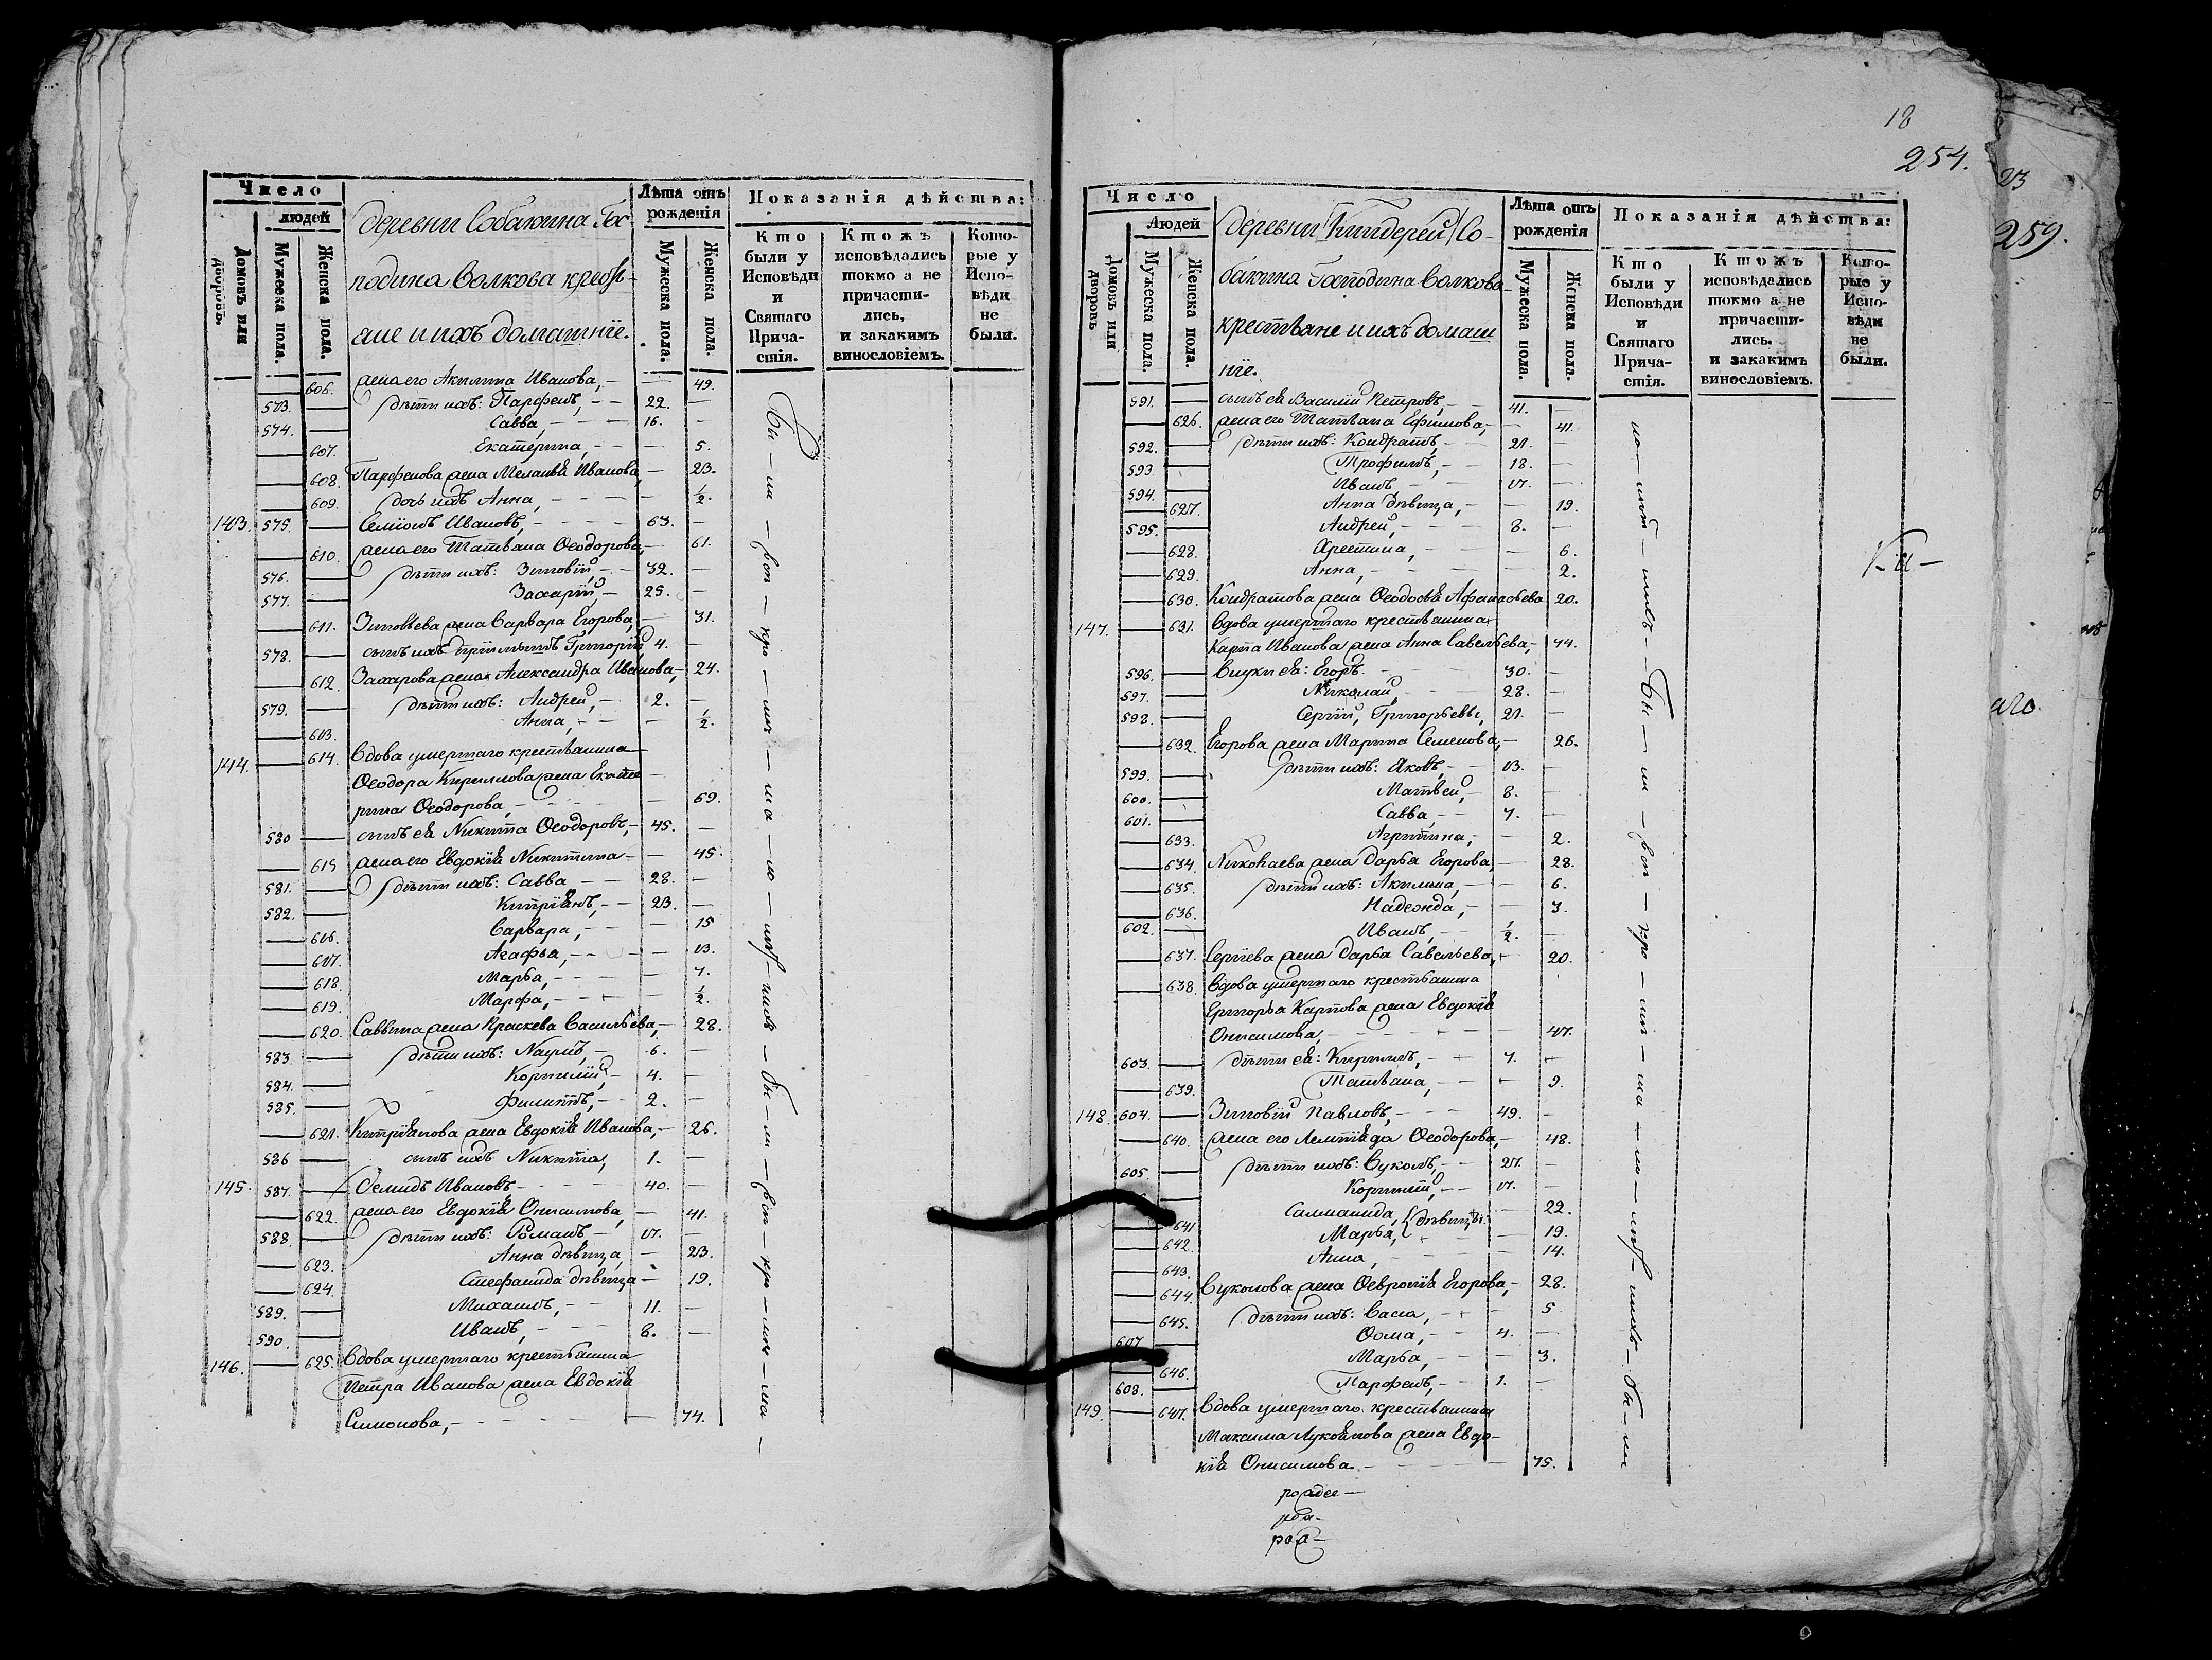 Число
людей
Домовъ или дворовъ.
Мужеска пола.
Женска пола.
деревни Собакина Гос-
подина Волкова кресть-
яне и ихъ домашніе.
Лѣта отъ рожденія
Мужеска пола.
Женска пола.
Показанія дѣйства:
Кто были у Исповѣди и Святаго Прича-стія.
Ктожъ исповѣдались токмо а не причасти-лись, и закакимъ винословіемъ.
Кото-рые у Испо-вѣди не были.
606. жена его Акилина Иванова, 49.
573. дѣти ихъ: Парфенъ, 22.
574. Савва, 16.
607. Екатерина, 5.
608. Парфенова жена Меланья Иванова 23.
609. дочь ихъ Анна, ½.
143. 575. Семіонъ Ивановъ, 63.
610. жена его Татьяна Ѳеодорова, 61.
576. дѣти ихъ: Зиновій, 32.
577. Захарій, 25.
611. Зиновьева жена Варвара Егорова, 31.
578. сынъ ихъ Григорій, 4.
612. Захарова жена Александра Иванова, 24.
579. дѣти ихъ: Андрей, 2.
613. Анна, ½.
144. 614. Вдова умершаго крестьянина
Ѳеодора Кирилова жена Екате
рина Ѳеодорова, 69.
580 сынъ ея Никита Ѳеодоровъ, 45.
615 жена его Евдокія Никитина 45.
581. дѣти ихъ: Савва 28.
582. Кипріянъ, 23.
616. Варвара, 15
617. Агафья, 13.
618. Марья, 7.
619. Марфа, ½.
620. Саввина жена Праскева Васильева, 28.
583. дѣти ихъ: Наумъ, 6.
584. Корнилій, 4.
585. Филиппъ, 2.
621. Кипріянова жена Евдокія Иванова, 26.
586 сынъ ихъ Никита, 1.
145. 587. Демидъ Ивановъ 40.
622. жена его Евдокія Онисимова, 41.
588. дѣти ихъ: Романъ 17.
623. Анна дѣвица, 23.
624. Стефанида дѣвица 19.
589. Михаилъ, 11.
590. Иванъ, 8.
146. 625. Вдова умершаго крестьянина
Петра Иванова жена Евдокія
Симонова, 74.
18
254.
Число
Людей
Домовъ или дворовъ
Мужеска пола.
Женска пола.
деревни Киндерей Со-
бакина Господина Волкова
крестьяне и ихъ домаш
ніе.
Лѣта отъ рожденія
Мужеска пола.
Женска пола.
Показанія дѣйства:
Кто были у Исповѣди и Святаго Прича-стія.
Ктожъ исповѣдались токмо а не причасти-лись. и закакимъ винословіемъ.
Кото-рые у Испо-вѣди не были.
591. сынъ ея Василій Петровъ, 41.
626. жена его Татьяна Ефимова, 41.
592. дѣти ихъ: Кондратъ, 21.
593. Трофимъ, 18.
594. Иванъ 17.
627. Анна дѣвица, 19.
595. Андрей, 8.
628. Христина, 6.
629. Анна, 2.
630. Кондратова жена Ѳеодосья Афанасьева 20.
147. 631. Вдова умершаго крестьянина
Карпа Иванова жена Анна Савельева, 74.
596. Внуки ея: Егоръ. 30.
597. Николай 28.
598. Сергій, Григорьевы, 21.
632. Егорова жена Марина Семенова, 26.
599. дѣти ихъ: Яковъ, 13.
600. Матвей, 8.
601. Савва, 7.
633. Агрипина, 2.
634. Николаева жена Дарья Егорова, 28.
635. дѣти ихъ: Акилина, 6.
636. Надежда, 3.
602. Иванъ, ½.
637. Сергіева жена Дарья Савельева, 20.
638. Вдова умершаго крестьянина
Григорья Карпова жена Евдокія
Онисимова, 47.
603. дѣти ея: Кирилъ, 7.
639. Татьяна, 9.
148. 604. Зиновій Павловъ, 49.
640. жена его Ѳеодорова, 48.
605. дѣти ихъ: Вуколъ, 27.
Корнилій, 17.
641 Саломанида, дѣвицы. 22.
642. Марья, 19.
643. Анна, 14.
644. Вуколова жена Ѳевронія Егорова, 28.
645. дѣти ихъ: Васса, 5
607. Ѳома, 4.
646. Марья, 3.
608. Парфенъ, 1.
149. 647. Вдова умершаго крестьянина
Максима Лукоянова жена Евдо-
кія Онисимова. 75.
23
259.